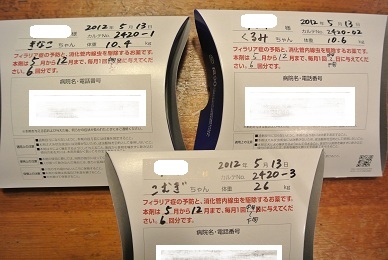 2012年 5月 13日
カルテNo. 2420-1
きなこ ちゃん 体重 10.4 kg
フィラリア症の予防と、消化管内線虫を駆除するお薬です。
本剤は 5月から 12月まで、毎月1回 に与えてくだ
さい。6回分です。
病院名・電話番号
様 2012年 5月 13日
カルテNo. 2420-02
くるみ ちゃん 体重 10.6 kg
フィラリア症の予防と、消化管内線虫を駆除するお薬です。
本剤は 月から 月まで、毎月1回 に与えてくだ
さい。 回分です。
病院名・電話番号
2012年 5月 13日
カルテNo. 2420-3
こむぎ ちゃん 体重 26 kg
フィラリア症の予防と、消化管内線虫を駆除するお薬です。
本剤は 5月から 12月まで、毎月1回 に与えてくだ
さい。6回分です。
病院名・電話番号